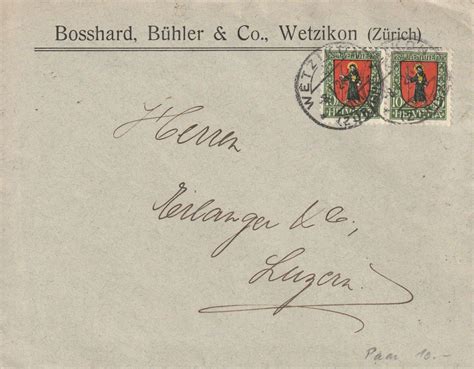 Bosshard, Bühler & Co., Wetzikon (Zürich)
WETZIKON
10 10
HELVETIA HELVETIA
Herren
Erlanger & Co,
Luzern.
Paar 10.-